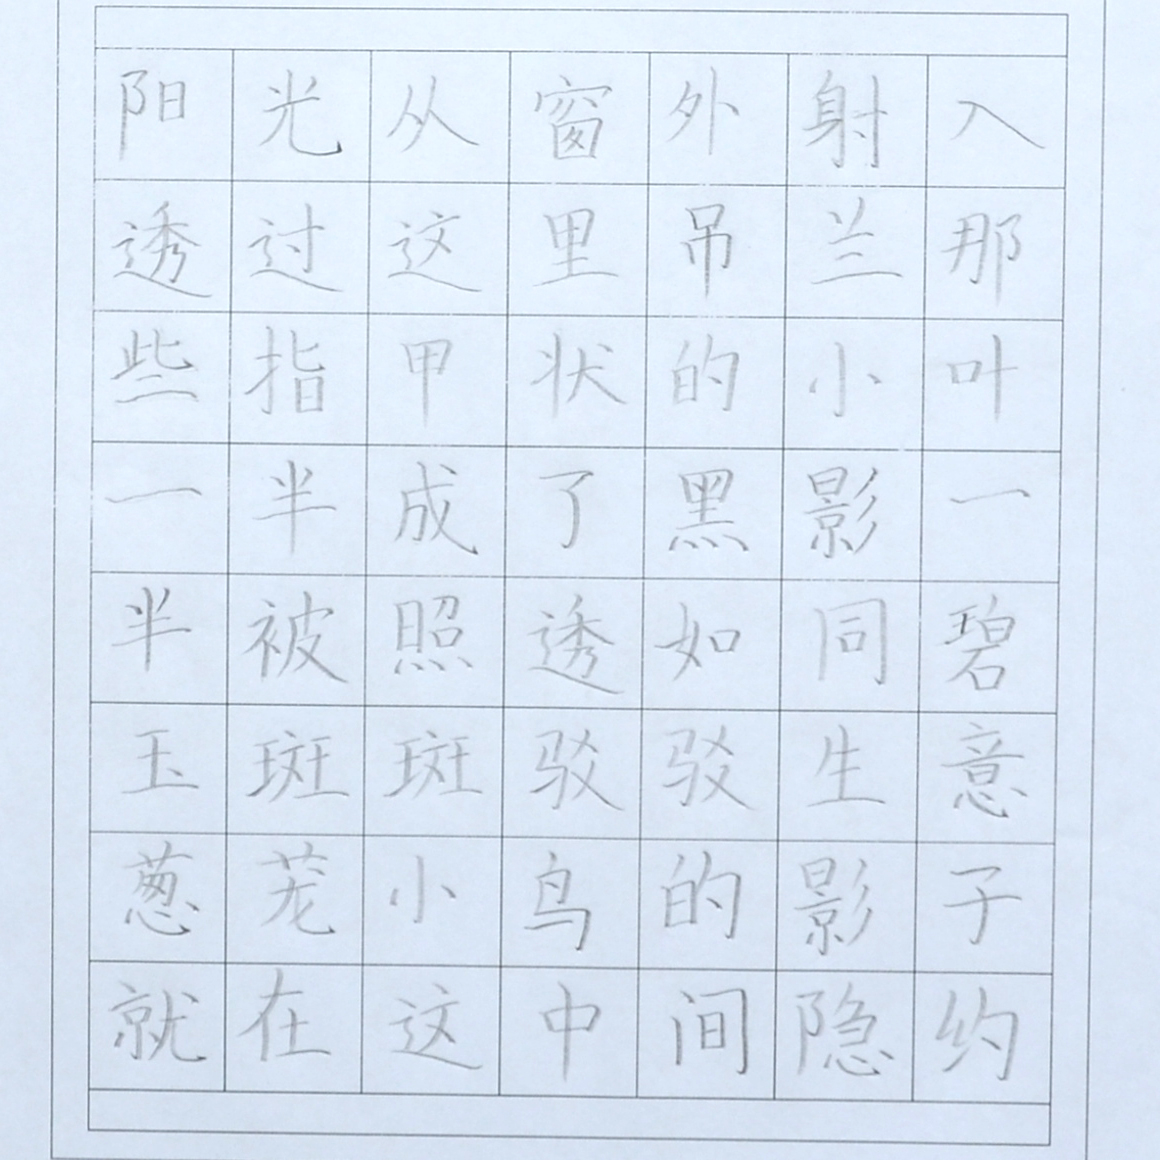 阳光从窗外射入
透过这里吊兰那
些指甲状的小叶
一半成了黑影一
半被照透如同碧
玉斑斑驳驳生意
葱茏小鸟的影子
就在这中间隐约